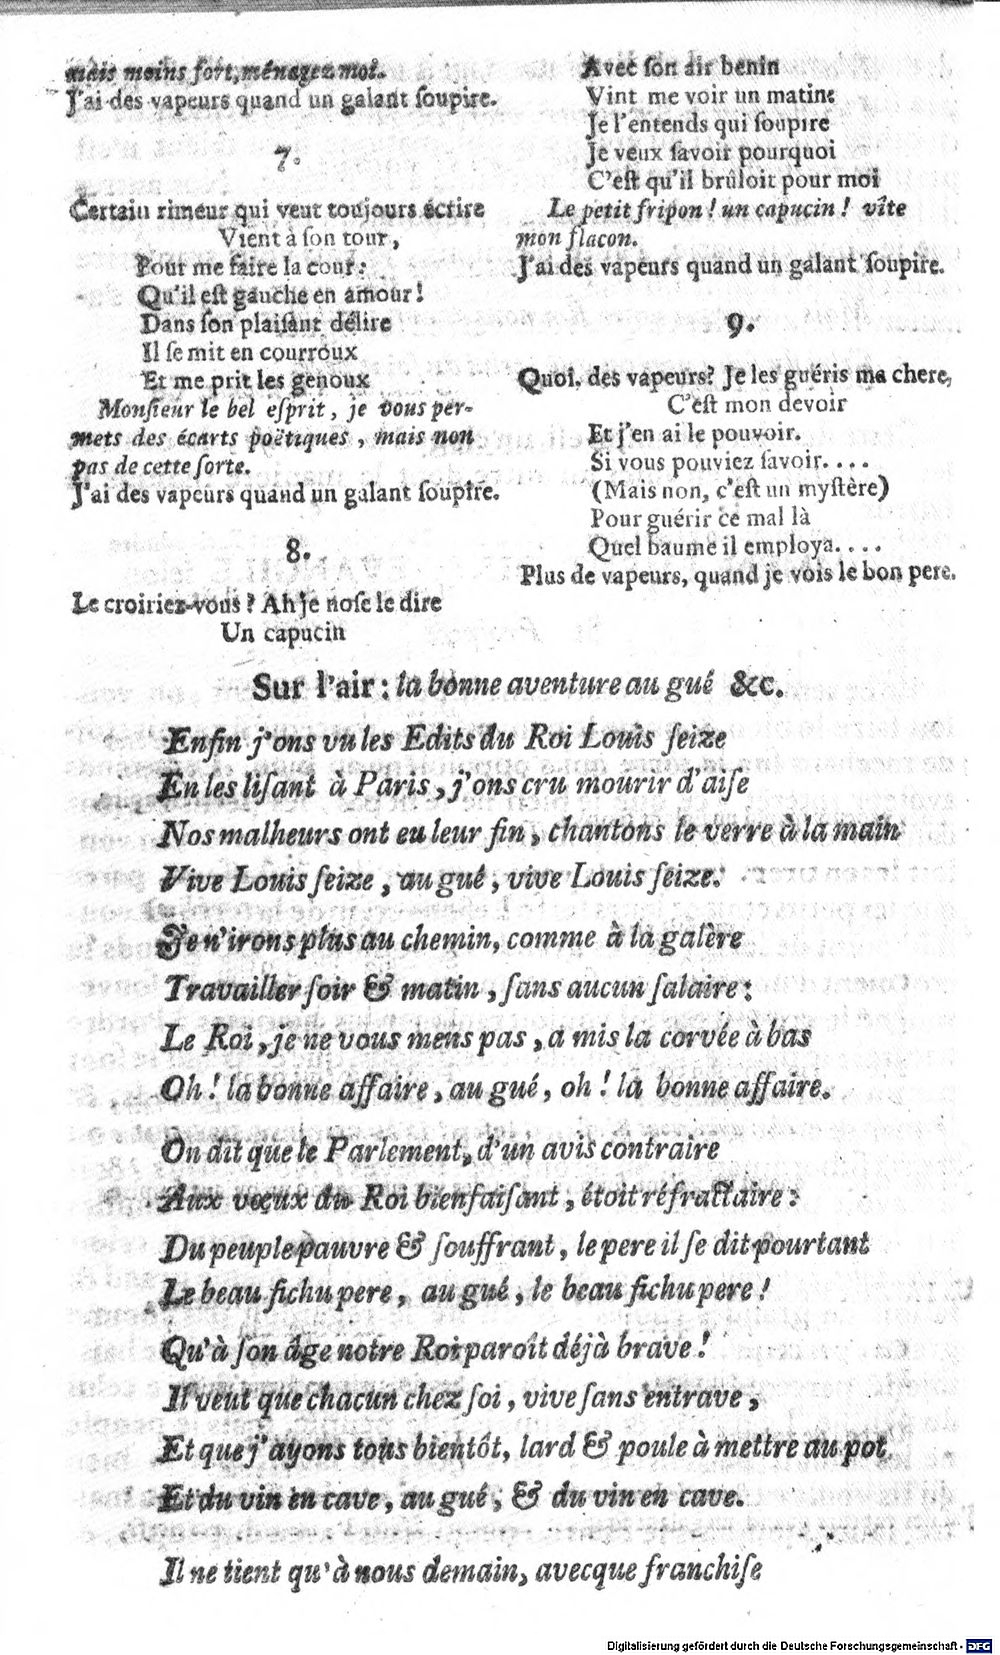 mais moins fort, ménagez moi.
J'ai des vapeurs quand un galant ſoupire.
7.
Certain rimeur qui veut toujours écrire
Vient à ſon tour,
Pour me faire la cour:
Qu'il eſt gauche en amour!
Dans ſon plaiſant délire
Il ſe mit en courroux
Et me prit les genoux
Monſieur le bel eſprit, je vous per-
mets des écarts poëtiques, mais non
pas de cette ſorte.
J'ai des vapeurs quand un galant ſoupire.
8.
Le croiriez-vous? Ah je noſe le dire
Un capucin
Avec ſon air benin
Vint me voir un matin:
Je l'entends qui ſoupire
Je veux ſavoir pourquoi
C'eſt qu'il brûloit pour moi
Le petit fripon! un capucin! vîte
mon flacon.
J'ai des vapeurs quand un galant ſoupire.
9.
Quoi, des vapeurs? Je les guéris ma chere,
C'eſt mon devoir
Et j'en ai le pouvoir.
Si vous pouviez ſavoir....
(Mais non, c'eſt un myſtère)
Pour guérir ce mal là
Quel baume il employa....
Plus de vapeurs, quand je vois le bon pere.
Sur l'air: la bonne aventure au gué &c.
Enfin j'ons vu les Edits du Roi Louis ſeize
En les liſant à Paris, j'ons cru mourir d'aiſe
Nos malheurs ont eu leur fin, chantons le verre à la main
Vive Louis ſeize, au gué, vive Louis ſeize.
Je n'irons plus au chemin, comme à la galère
Travailler ſoir & matin, ſans aucun ſalaire:
Le Roi, je ne vous mens pas, a mis la corvée à bas
Oh! la bonne affaire, au gué, oh! la bonne affaire.
On dit que le Parlement, d'un avis contraire
Aux vœux du Roi bienfaiſant, étoit réfractaire:
Du peuple pauvre & ſouffrant, le pere il ſe dit pourtant
Le beau fichu pere, au gué, le beau fichu pere!
Qu'à ſon âge notre Roi paroît déjà brave!
Il veut que chacun chez ſoi, vive ſans entrave,
Et que j'ayons tous bientôt, lard & poule à mettre au pot
Et du vin en cave, au gué, & du vin en cave.
Il ne tient qu'à nous demain, avecque franchiſe
Digitalisierung gefördert durch die Deutsche Forschungsgemeinschaft - DFG